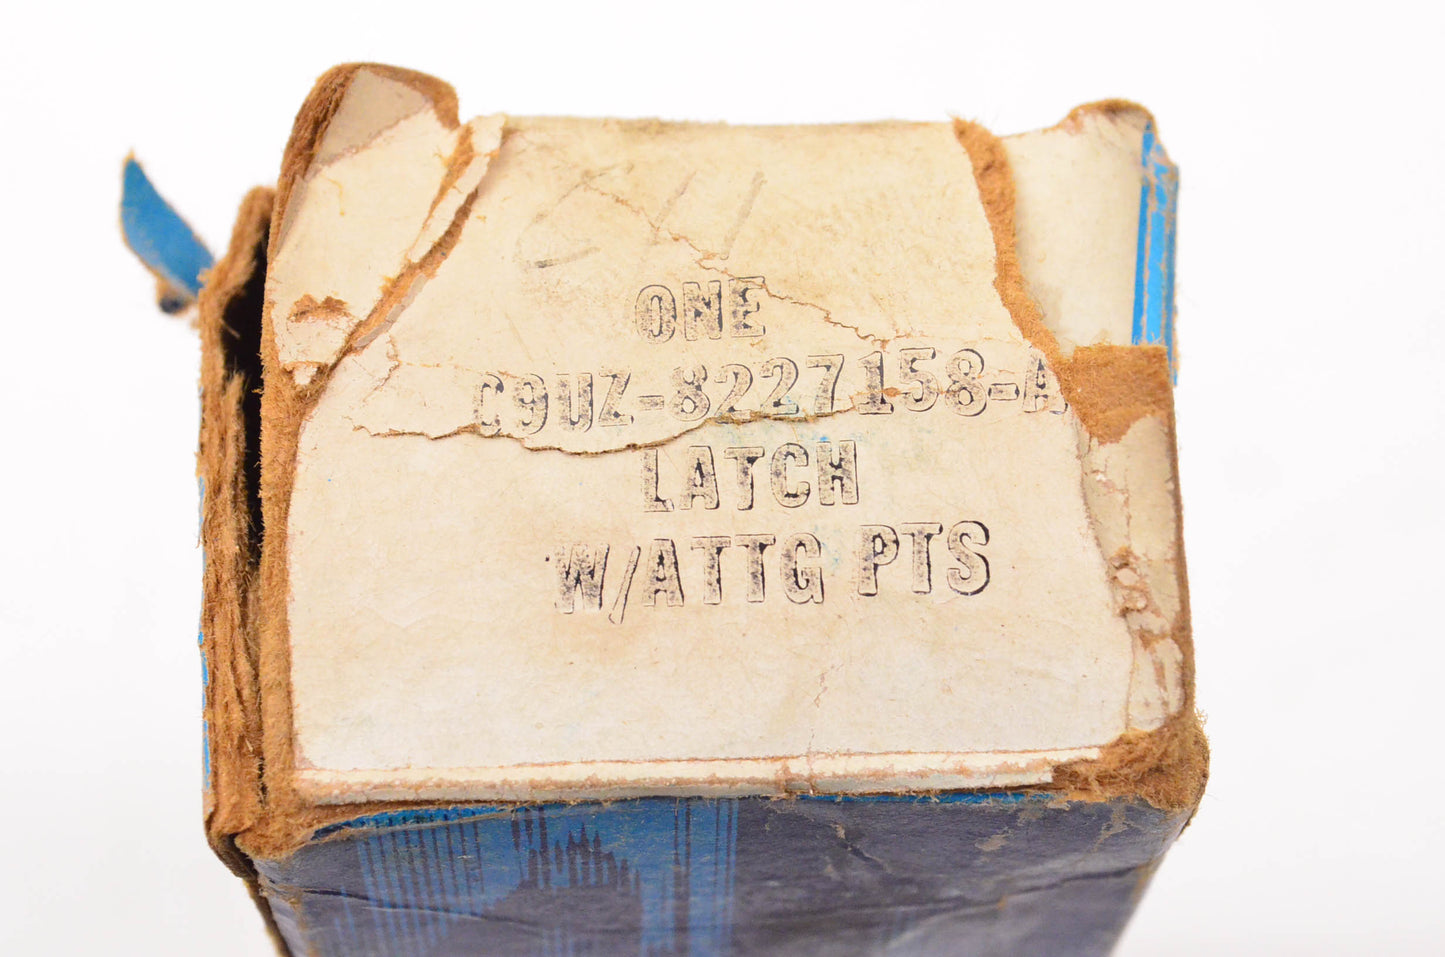 ONE
C9UZ-8227158-A
LATCH
W/ATTG PTS